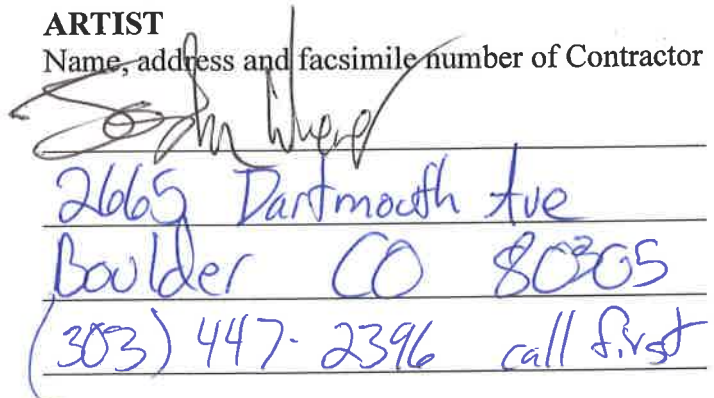 ARTIST
Name, address and facsimile number of Contractor
2665 Dartmouth Ave
Boulder CO 80305
(303) 447-2396 call first